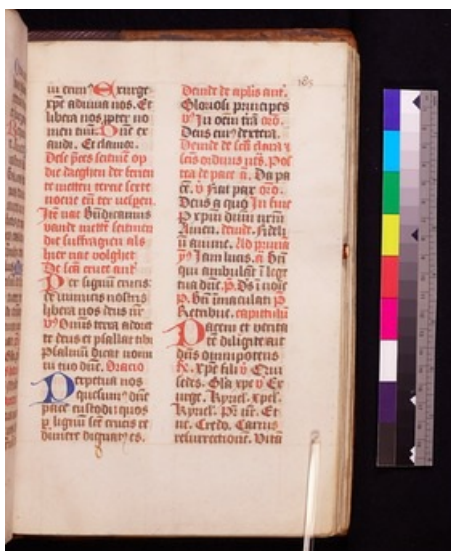 185
in eternū Exurge
xpē adiuva nos. Et
libera nos ꝓpter no
men tuū. Dn̄e ex
audi. Et clamor.
Dese p̄ces seitmē op
die daeghen der ferien
te metten eerne ierste
nocne en̄ ter vesperē.
Itē nae Bn̄dicamus
vande mettē seitmen
die suffragien als
hier nae volghet
De scā cruce ant̄
Per signum crucis
de inimicis nostris
libera nos deus nr̄
v̄s Omnis terra adoret
te deus et psallat tibi
psalmū dicat nomi
ni tuo dn̄e. Oracio
Perpetua nos
quesumꝰ dn̄e
pace custodi quos
ꝑ lignum scē crucis re
dimere dignatꝰ es.
Deinde de aplīs ant̄.
Gloriosi principes
v̄s In oēm trā orō.
Deus cuiꝰ dextera.
Deinde de scā clara ⁊
scīs ordinis nr̄i. Pos
tea de pace ā. Da pa
cē. v̄ Fiat pax orō.
Deus a quo In fine
P xpm̄ dn̄m nr̄m
Amen. deinde. Fideliū
anime. Ad primā
ȳ Iam lucis. ā Bn̄i
qui ambulāt ī lege
tua dn̄e. P̄. Ds̄ ī noīe
P̄. Bn̄i īmaculati P̄
Retribue. capitulū
Pacem et verita
tē diligite ait
dn̄s omnipotens
R̄. Xpē fili v̄ Qui
sedes. Glā xpē v̄ Ex
urge. Kyriel. xpel.
Kyriel. Pr̄ nr̄. Et
ne. Credo. Carnis
resurrectionē. Vitā